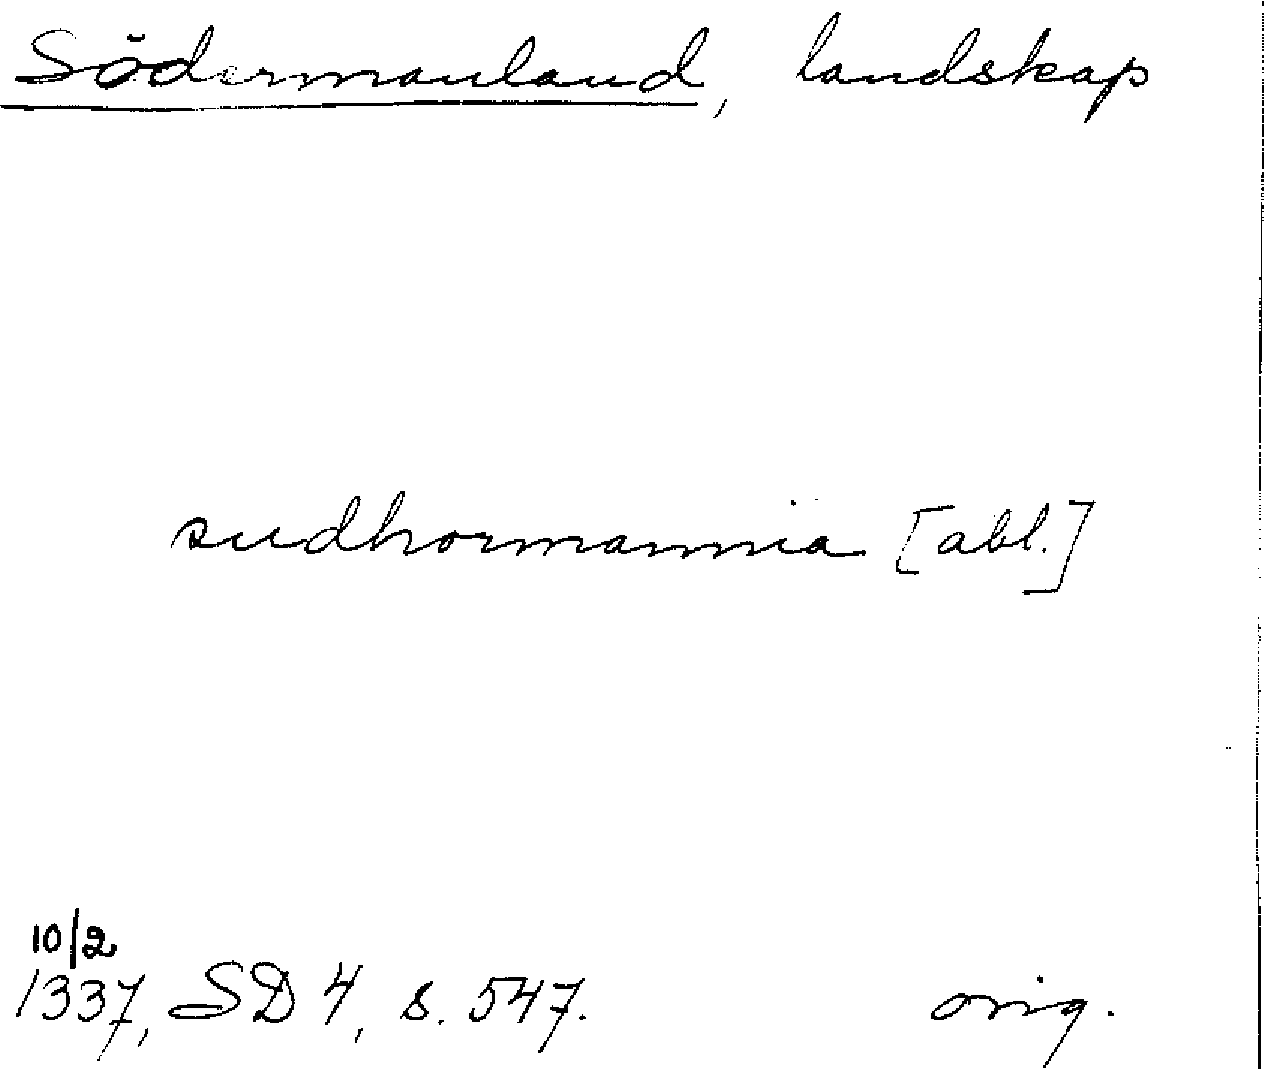 Södermanland, landskap
sudhormannia [abl.]
10/2
1337, SD 4, s. 547. orig.